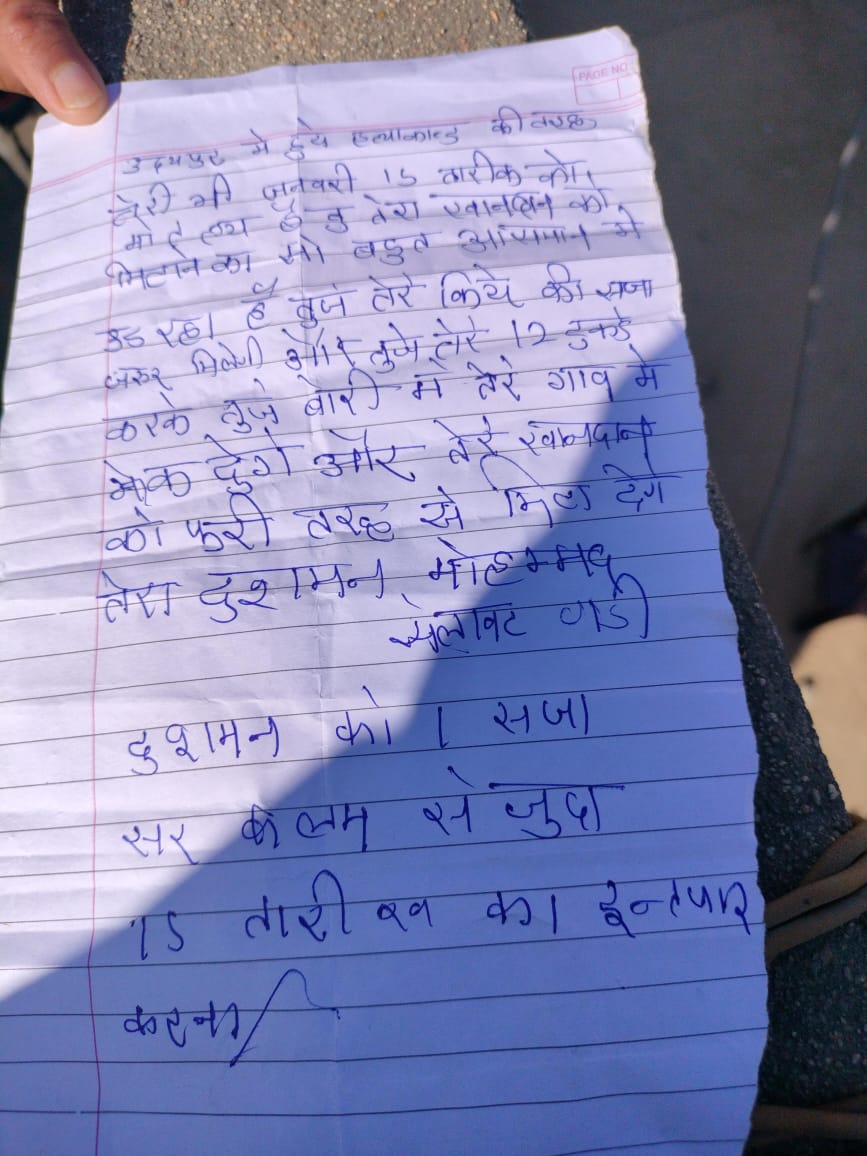 PAGE NO
उदयपुर मे हुये हत्याकान्ड की तरह
तेरी भी जनवरी 15 तारीक को
मोत तय है तु तेरा खानदान को
मिटाने का सो बहुत आसमान मे
उड रहा है तुजे तेरे किये की सजा
जरुर मिलेगी और तुजे तेरे 12 टुकडे
करके तुजे बोरी मे तेरे गाव मे
फेक देगे और तेरे खानदान
को फुरी तरह से मिटा देग
तेरा दुशमन मोहम्मद
सलावट वाडी
दुशमन को 1 सजा
सर कलम से जुदा
15 तारीख का इन्तजार
करना